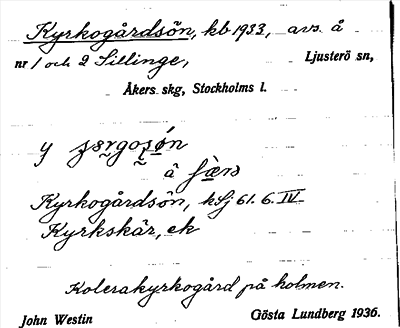 Kyrkogårdsön, kb 1933, avs. å
nr 1 och 2 Sillinge, Ljusterö sn,
Åkers skg, Stockholms l.
y
å
Kyrkogårdsön, kSj 61. 6. IV
Kyrkskär, ek
Kolerakyrkogård på holmen.
John Westin Gösta Lundberg 1936.